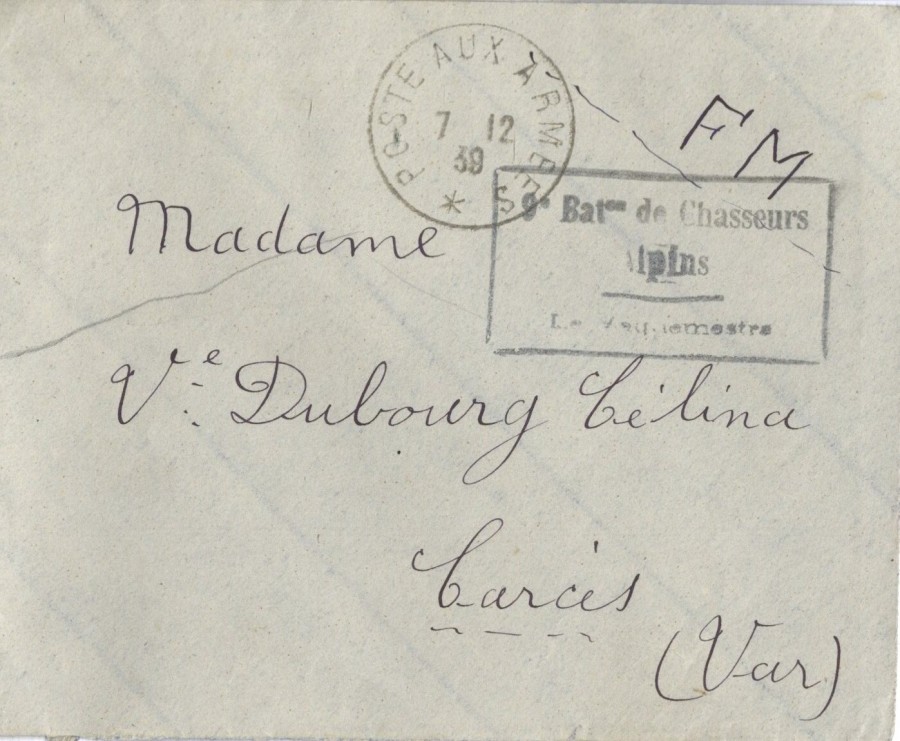 POSTE AUX ARMEES
7 12
39
F M
9e Baton de Chasseurs
Alpins
Le Vaguemestre
Madame
Ve Dubourg Célina
Carcès
(Var)